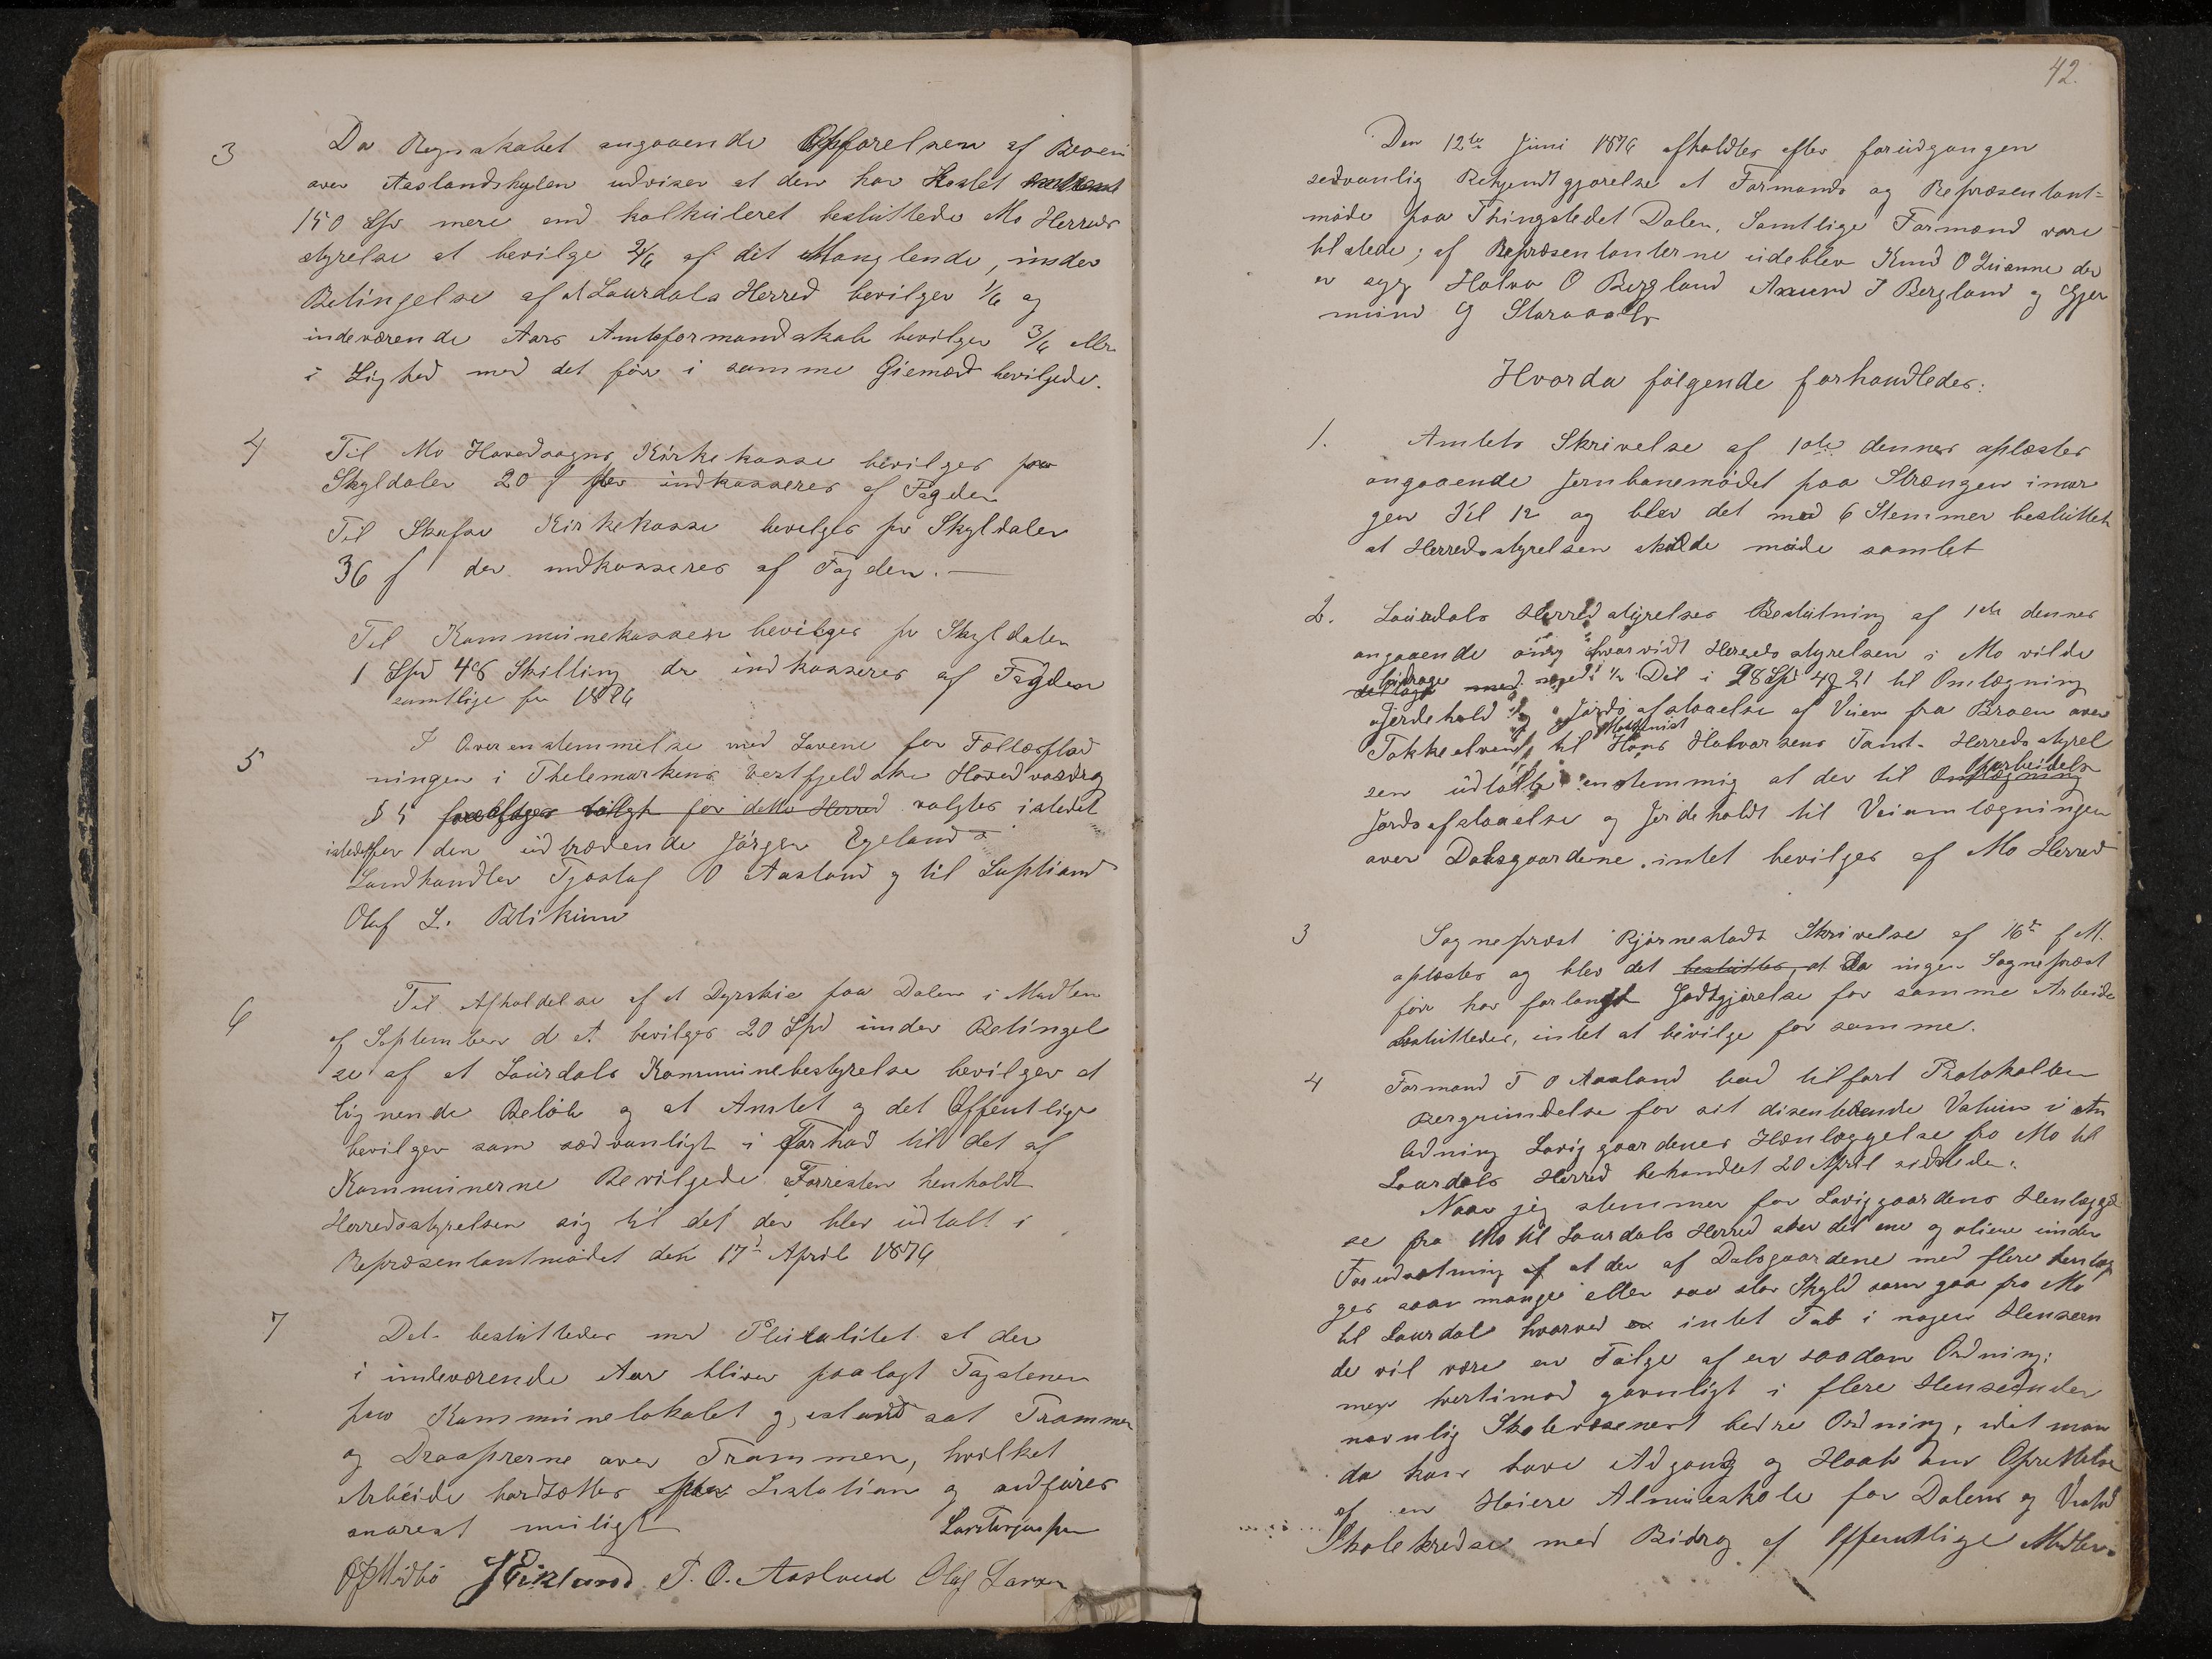 3 Da Regnskabet angaaende Opførelsen af Broen
over Aaslandshylen udviser at den har Kostet
150 Spd mere end kalkuleret besluttede Mo Herreds
styrelse at bevilge 2/6 af dit Manglende, under
Betingelse af at Laurdals Herred bevilger 1/6 og
indeværende Aars Amtsformandskab bevilger 3/6 eller
i Lighed med det før i samme Giemed bevilgede.
4 Til Mo Hovedsogns Kirkekasse bevilges pr
Skyldaler 20 ſ der indkasseres af Fogden
Til Skafse Kirkekasse bevilges pr Skyldaler
36 ſ der indkasseres af Fogden. —
Til Kommunekassen bevilges pr Skyldaler
1 Spd 48 Skilling der indkasseres af Fogden
samtlige for 1876
5 I Overenstemmelse med Lovene for Fællesflød
ningen i Thelemarkens Vestfjeldske Hovedvasdrag
§ 5 for dette Herred valgtes istedet
istedetfor den udtrædende Jørgen Egeland
Landhandler Tjostof O Aasland og til Supliant
Oluf L. Blikum
6 Til Afholdelse af et Dyrskie paa Dalen i Midten
af September d A bevilges 20 Spd under Betingel
se af at Laurdals Kommunebestyrelse bevilger et
lignende Beløb og at Amtet og det Offentlige
bevilger som sædvanligt i Forhold til det af
Kommunerne Bevilgede. Forresten henholdt
Herredsstyrelsen sig til det der blev udtalt i
Repræsentantmødet den 17de April 1876
7 Det besluttedes med Pluralitet at der
i indeværende Aar bliver paalagt Tagstenen
paa Kommunelokalet og istand sat Trammen
og Draaperne over Trammen, hvilket
Arbeide bortsættes ved Lisitation og udføres
snarest muligt
OPMidbö Eikland T. O. Aasland Olaf Larsen
42.
Den 12te Juni 1876 afholdtes efter forudgangen
sedvanlig Bekjendtgjørelse et Formands og Repræsentant=
møde paa Thingstedet Dalen. Samtlige Formænd vare
tilstede; af Repræsentanterne udeblev Knud O der
er syg Halvor O Bergland Aanund J Bergland og Gjer
mund G
Hvorda følgende forhandledes:
1. Amtets Skrivelse af 10de dennes oplæstes
angaaende Jernbanemødet paa Strængen imor
gen Kl 12 og blev det med 6 Stemmer besluttet
at Herredsstyrelsen skulde møde samlet
2. Laurdals Herredstyrelses Beslutning af 1ste dennes
angaaende hvorvidt Herredsstyrelsen i Mo vilde
bidrage med 1/2 Del i 28 Spd 4 ꝟ 21 til Omlægning
Gjerdehold og Jords afstaaelse af Veien fra Broen over
Tokkeelven til Maskinist Hans Halvorsens Tomt. Herredsstyrel
sen udtalte enstemmig at der til Oparbeidels
Jordsafstaaelse og Gjerdeholdt til Veiomlægningen
over Dalsgaardene, intet bevilges af Mo Herred
3 Sognepræst Bjørnestads Skrivelse af 16de f M.
oplæstes og blev det besluttes, at Da ingen Sognepræst
før har forlangt Godtgjørelse for samme Arbeide
besluttedes, intet at bevilge for samme.
4 Formand T O Aasland bad tilført Protokollen
Bergrundelse for sit disenterende Votum i An
ledning Laviggaardenes Henlæggelse fra Mo til
Laurdals Herred behandlet 20 April sidstleden.
Naar jeg stemmer for Laviggaardens Henlæggel
se fra Mo til Laurdals Herred sker det ene og alene under
Forudsætning af at der af Dalsgaardene med flere henlæg
ges saa mange eller saa stor Skyld som gaar fra Mo
til Laurdal hvorved intet Tab i nogen Henseen
de vil være en Følge af en saadan Ordning;
men hertimod gavnligt i flere Henseender
navnlig Skolevæsenets bedre Ordning, idet man
da kan have Adgang og Haab om Oprettelse
af en Høiere Almueskole for Dalens og
Skolekredse med Bidrag af Offentlige Midler.